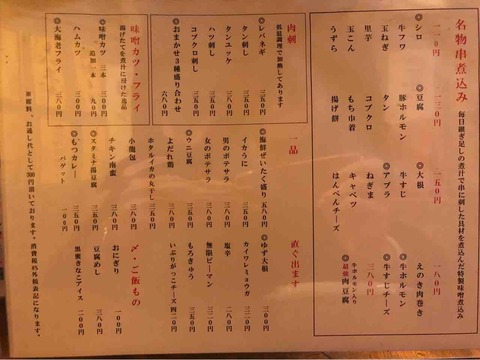 名物串煮込み
毎日継ぎ足しの煮汁で串に刺した具材を煮込んだ特製味噌煮込み
一一〇円
◎シロ
牛フワ
玉ねぎ
里芋
玉こん
うずら
一三〇円
◎豆腐
豚ホルモン
タン
コブクロ
もち巾着
揚げ餅
一五〇円
◎大根
牛すじ
◎アブラ
ねぎま
キャベツ
はんぺんチーズ
一八〇円
えのき肉巻き
◎牛ホルモン
◎牛すじチーズ
三八〇円
牛ホルモン入り
◎最強肉豆腐
肉刺
低温調理で加熱してあります
◎レバネギ 三五〇円
タン刺し 三五〇円
タンユッケ 三五〇円
ハツ刺し 三五〇円
コブクロ刺し 三五〇円
◎おまかせ3種盛り合わせ 六八〇円
味噌カツ・フライ
揚げたてを煮汁に浸けた逸品
◎味噌カツ 三本 三〇〇円
追加一本 九〇円
ハムカツ 三〇〇円
◎大海老フライ 三八〇円
一品
◎海鮮ぜいたく盛り 五八〇円
イカうに 三五〇円
男のポテサラ 三八〇円
女のポテサラ 三八〇円
◎ウニ豆腐 三五〇円
ホタルイカの丸干し 三五〇円
よだれ鶏 三五〇円
小籠包 三八〇円
チキン南蛮 三八〇円
◎スタミナ湯豆腐 三五〇円
◎もつカレー 三八〇円
バケット 一〇〇円
直ぐ出ます
◎ゆず大根 三〇〇円
カイワレミョウガ 三〇〇円
塩辛 三〇〇円
無限ピーマン 三〇〇円
もろきゅう 三五〇円
いぶりがっこチーズ 四二〇円
〆・ご飯もの
おにぎり 一〇〇円
豆腐めし 三八〇円
黒蜜きなこアイス 二〇〇円
※席料、お通し代として300円頂いております。消費税は外税表記になります。